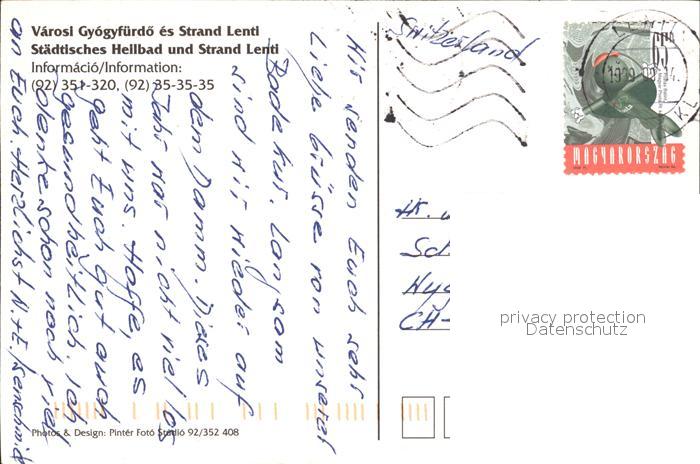 Városi Gyógyfürdő és Strand Lenti
Städtisches Hellbad und Strand Lenti
Információ/Information:
(92) 351-320, (92) 35-35-35
Wir senden Euch sehr
liebe Grüsse von unserer
Badekur. Langsam
sind wir wieder auf
dem Damm. Dieses
Jahr war nicht viel los
mit uns. Hoffe, es
geht Euch gut auch
gesundheitlich. Ich
denke schon noch viel
an Euch. Herzlichst N.+E.
Switzerland
65
MAGYARORSZÁG
CH-
privacy protection
Datenschutz
Photos & Design: Pintér Fotó Stúdió 92/352 408